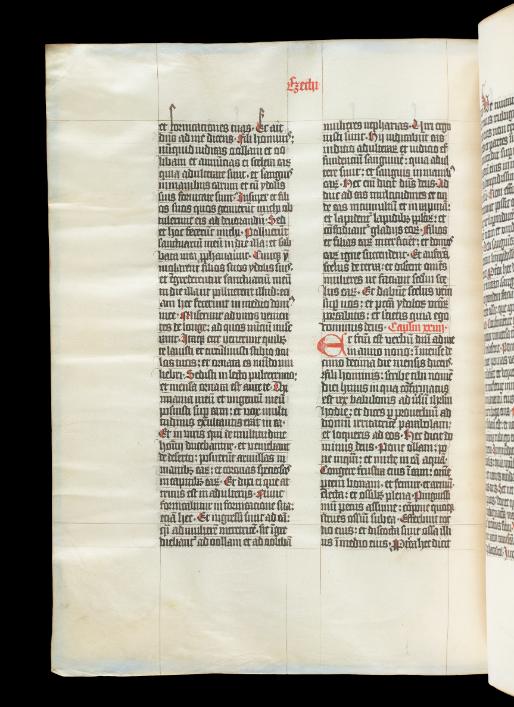 Ezechi
et fornicationes tuas. Et ait
dn̄s ad me dicens. Fili hominis:
nūquid iudicas oollam et oo
libam et annūcias ei scelera earū
quia adulterate sunt. et sanguis
in manibus earum et cū ydolis
suis fornicate sunt. Insuper et fili
os suos quos genuerūt michi ob
tulerunt eis ad deuorandū. Sed
et hoc fecerūt michi. Polluerūt
sanctuariū meū in die illa: et sab
bata mea prophanauerūt. Cumq̄
ymolarent filios suos ydolis suis
et īgrederentur sanctuariū meū
in die illa ut polluerent illud: eci
am hec fecerunt in medio dom̄
mee. Miserunt ad viros venien
tes de longe: ad quos nūciū mise
rant. Itaq̄ ecce venerunt quibus
te lauisti et circūlinisti stibio ocu
los tuos: et ornata es mūdo mu
liebri. Sedisti in lecto pulcerrimo:
et mensa ornata est ante te. Thi
miama meū et vngentū meū
posuisti sup eam: et vox multi
tudinis exultantis erat in ea.
Et in viris qui de multitudine
hoīm ducebantur. et veniebant
de deserto: posuerūt armillas in
manibus eorū: et coronas speciosas
in capitibus eorū. Et dixi ei que at
trita est in adulteriis. Nunc
fornicabitur in fornicatione sua:
eciā hec. Et ingressi sunt ad eā:
q̄si ad mulierē meretricē. sic īgre
diebant̄ ad oollam et ad oolibā
mulieres nepharias. Viri ergo
iusti sunt. Hii iudicabūt eas
iudicio adulterarū et iudicio ef
fundenciū sanguinē: quia adul
tere sunt: et sanguis in manibus
earū. Hec enī dicit dn̄s deus. Ad
duc ad eas multitudinē et tra
de eas in tumultū et in rapinā:
et lapident̄ lapidibus pplorū: et
confodiant̄ gladiis eorū. Filios
et filias earū interficiēt: et domos
earū igne succendent. Et auferā
scelus de terra: et discent omēs
mulieres ne faciant scdm sce
lus earū. Et dabūt scelus vrm̄
sup vos: et pctā ydolorū vrorū
portabitis: et scietis quia ego
dominus deus. Caplm xxiiii.
Et factū est verbū dn̄i ad me
in anno nono: in mense de
cimo decima die mensis dicens.
Fili hominis: scribe tibi nomē
diei huius in qua cōfirmatus
est rex babilonis ad usū ihrlm
hodie: et dices p prouerbiū ad
domū irritatricē parabolam:
et loqueris ad eos. Hec dicit do
minus deus. Pone ollam: po
ne inquā: et mitte in eā aquā.
Congere frusta eius ī eam: omnē
partē bonam. et femur et armū:
electa: et ossibus plena. Pinguissi
mū pecus assume: cōpone quoq̄
strues ossiū sub ea. Efferbuit coc
tio eius: et discocta sunt ossa illi
us ī medio eius. Pp̄terea hec dicit